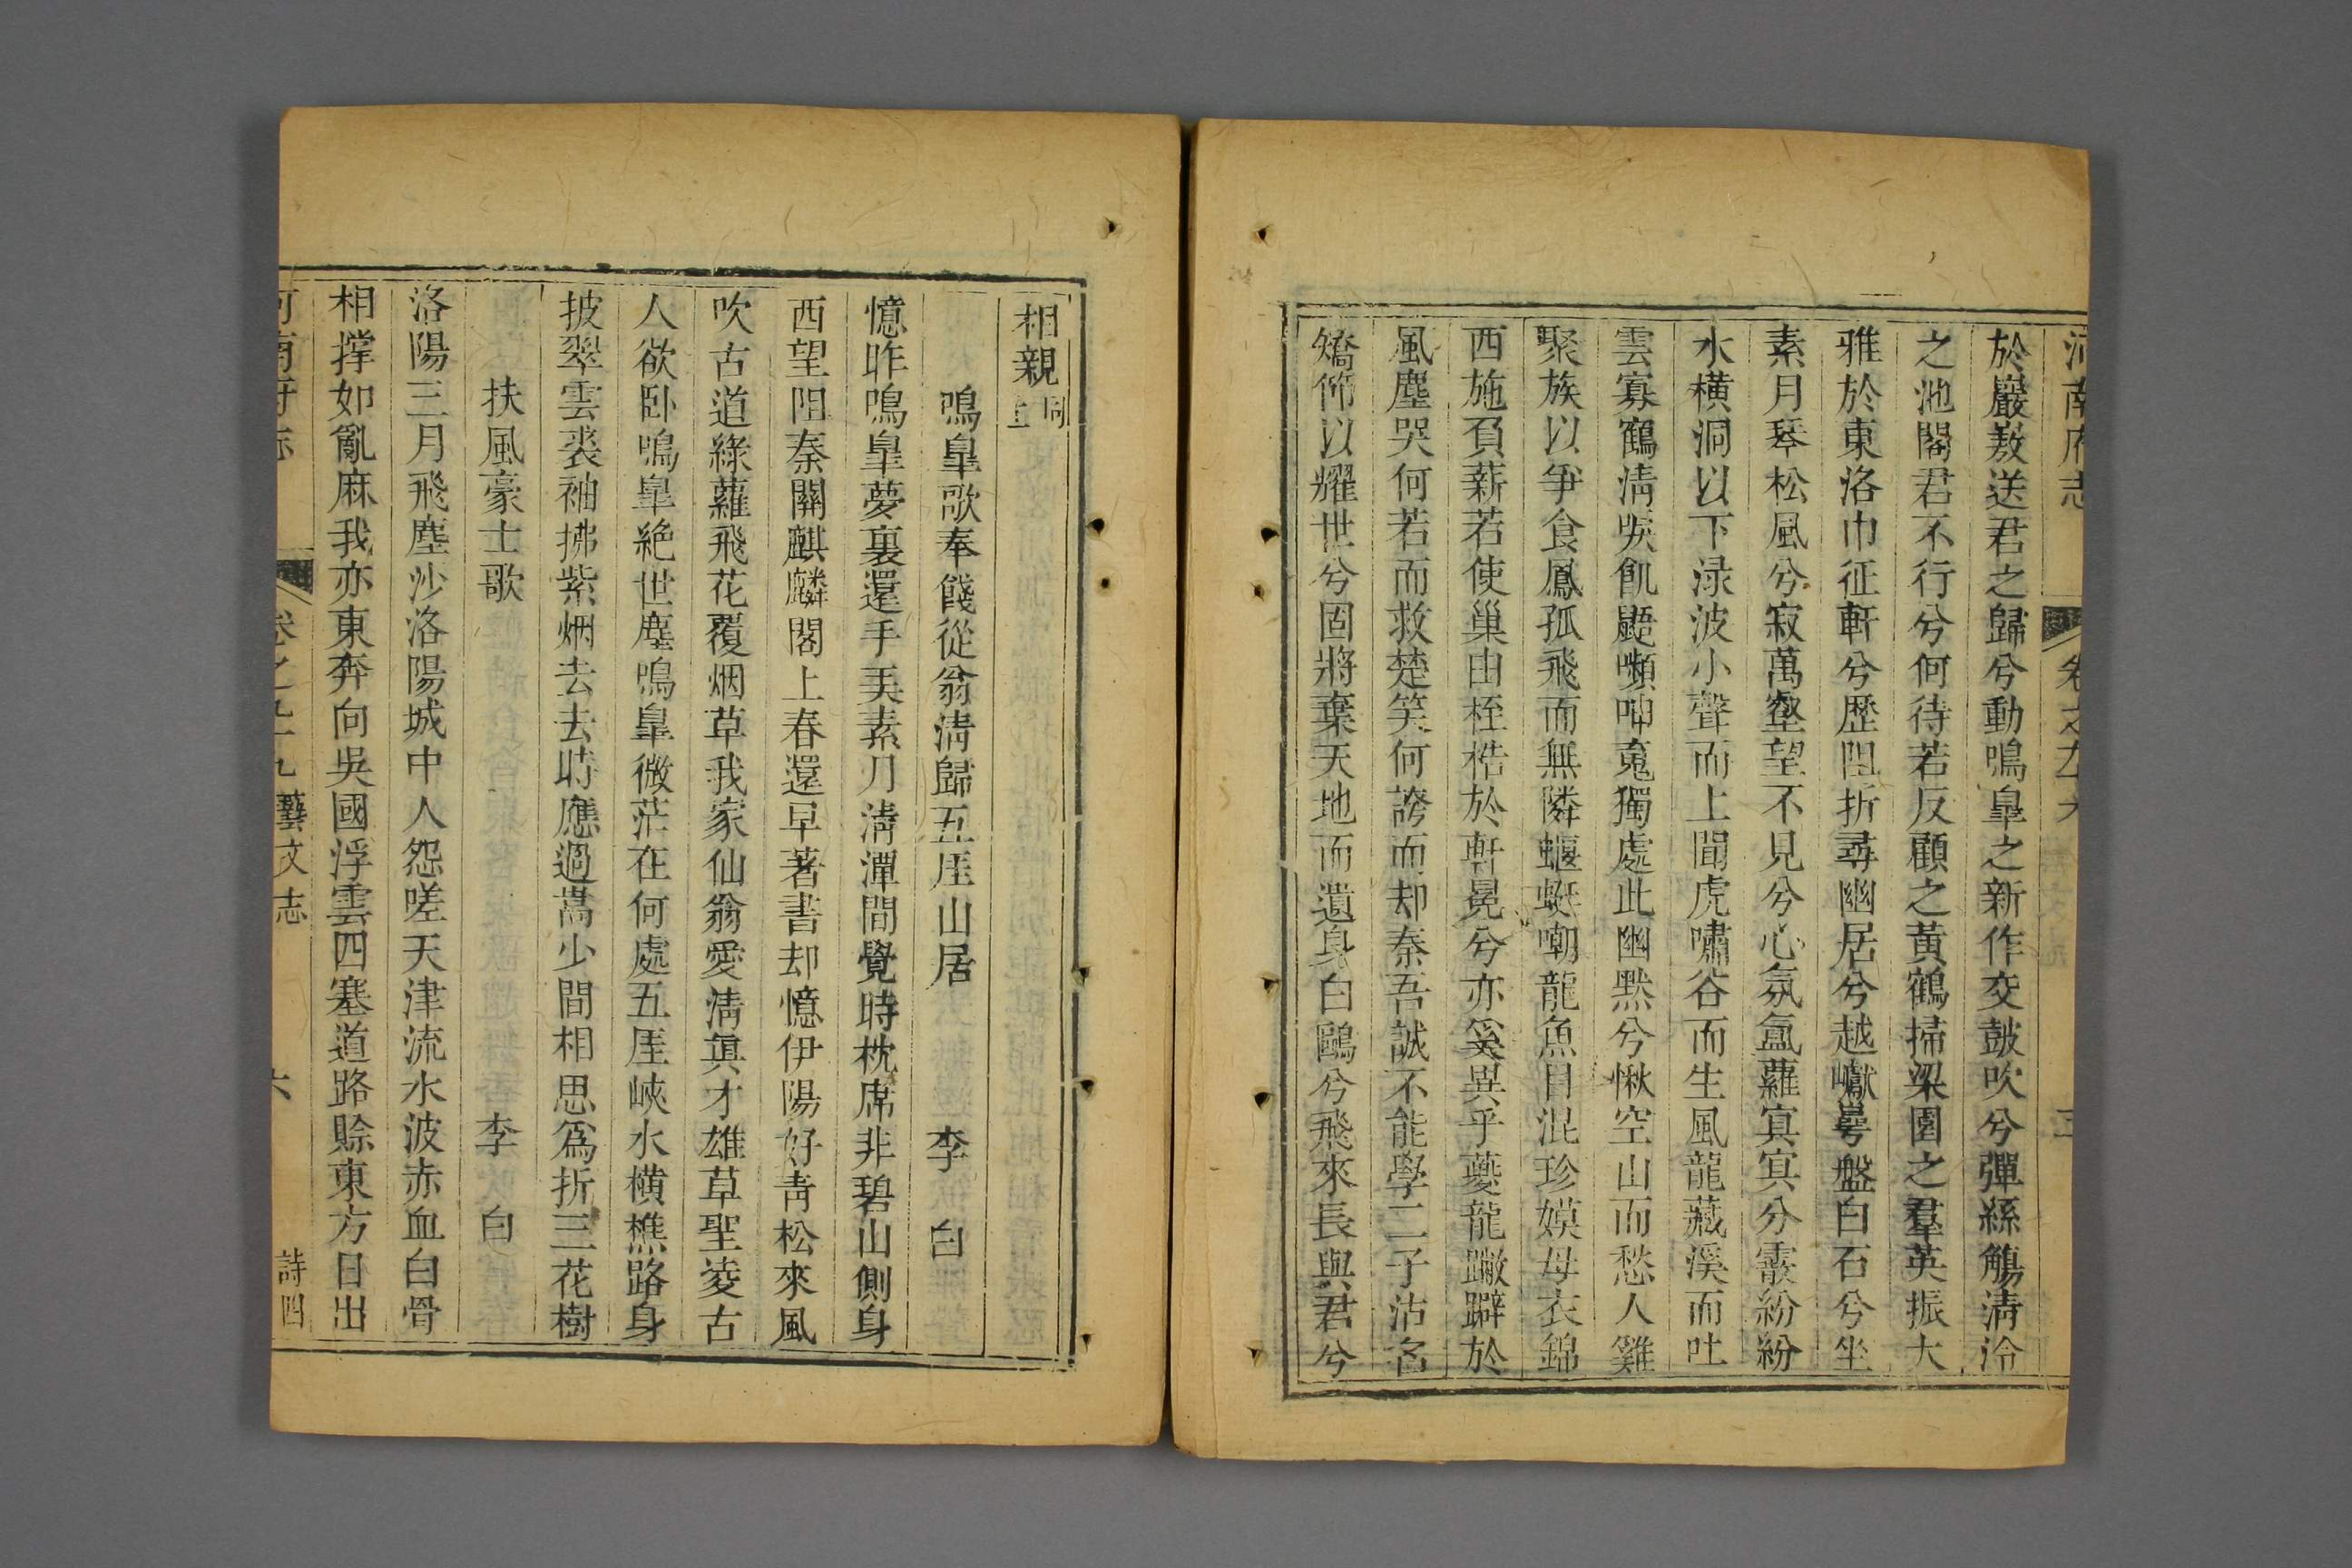 河南府志
卷之
於巖敖送君之歸兮動鳴臯之新作交鼓吹兮彈絲觴淸泠
之池閣君不行兮何待若反顧之黃鶴掃梁園之羣英振大
雅於東洛巾征軒兮歷阻折尋幽居兮越巘崿盤白石兮坐
素月琴松風兮寂萬壑望不見兮心氛氳蘿㝠㝠兮霰紛紛
水橫洞以下渌波小聲而上聞虎嘯谷而生風龍藏溪而吐
雲寡鶴淸唳飢鼯嚬呻䰟獨處此幽黙兮愀空山而愁人雞
聚族以爭食鳳孤飛而無隣蝘蜓嘲龍魚目混珍嫫母衣錦
西施負薪若使巢由桎梏於軒冕兮亦奚異乎夔龍蹩躃於
風塵哭何若而救楚笑何誇而却秦吾誠不能學二子沽名
矯俗以耀世兮固將棄天地而遺身白鷗兮飛來長與君兮
相親同上
鳴臯歌奉餞從翁淸歸五厓山居 李白
憶昨鳴臯夢裏還手弄素月淸潭間覺時枕席非碧山側身
西望阻秦關麒麟閣上春還早著書却憶伊陽好靑松來風
吹古道綠蘿飛花覆烟草我家仙翁愛淸眞才雄草聖凌古
人欲卧鳴臯絶世塵鳴臯微茫在何處五厓峽水橫樵路身
披翠雲裘袖拂紫烟去去時應過嵩少間相思爲折三花樹
扶風豪士歌 李白
洛陽三月飛塵沙洛陽城中人怨嗟天津流水波赤血白骨
相撑如亂麻我亦東奔向吳國浮雲四塞道路賖東方日出
河南府志 卷之 九 藝文志 六 詩四